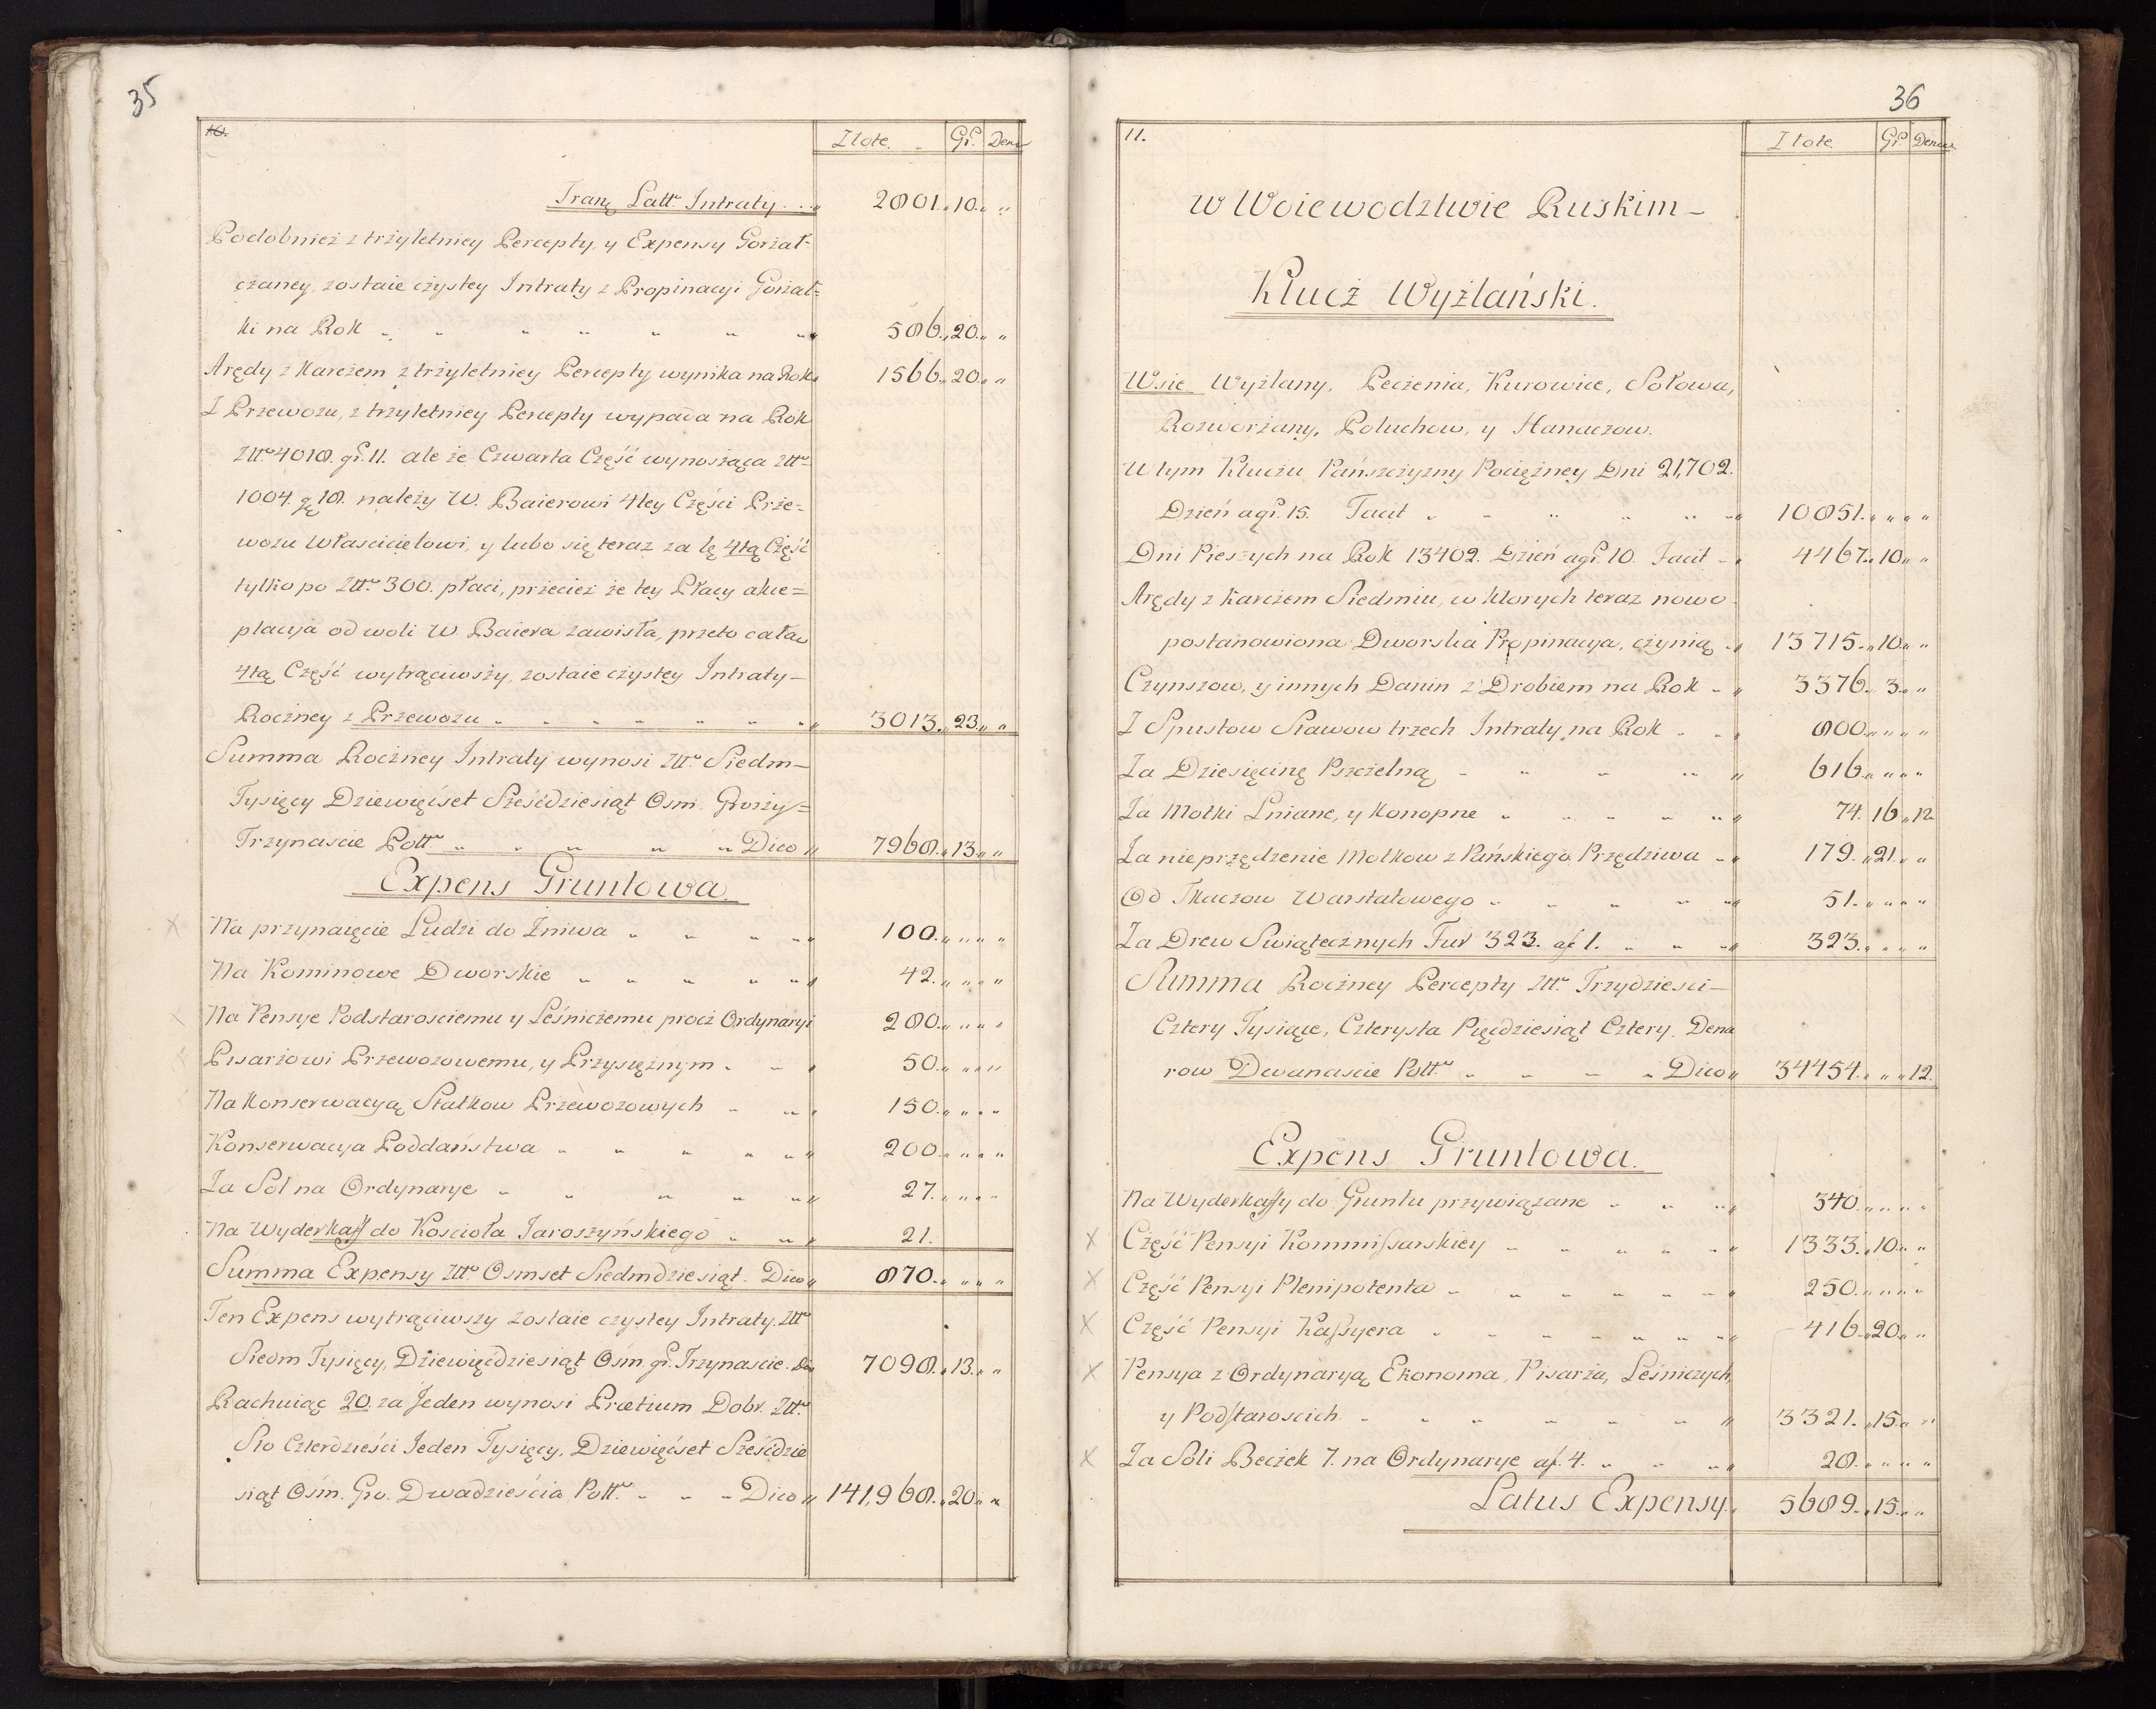 35
10. Złote. Gr. Den
Tranz Latt. Intraty 2801. 10. „
Podobnież z trzyletniey Percepty, y Expensy Gorzał-
czaney, zostaie czystey Intraty z Propinacyi Gorzał=
ki na Rok „ 586. 20. „
Arędy z Karczem z trzyletniey Percepty wynika na Rok 1566. 20. „
Z Przewozu, z trzyletniey Percepty wypada na Rok
Złł. 4018. gr. 11. ale że Czwarta Część wynosząca Złł.
1004. gr. 18. należy W. Baierowi 4tey Części Prze=
wozu Włascicielowi, y lubo się teraz za tę 4tą Część
tylko po Złł. 300. płaci, przecież że tey Płacy akce=
ptacyja od woli W. Baiera zawisła, przeto całą
4tą Część wytrąciwszy, zostaie czystey Intraty
Roczney z Przewozu „ 3013. 23. „
Summa Roczney Intraty wynosi Złł. Siedm
Tysięcy Dziewięćset Sześćdziesiąt Osm. Groszy
Trzynascie Poll. „ Dico 7968. 13. „
Expens Gruntowa
Na przynaięcie Ludzi do Żniwa „ 100. „ „
Na Kominowe Dworskie „ 42. „ „
Na Pensye Podstarosciemu y Leśniczemu procz Ordynaryi 280. „ „
Pisarzowi Przewozowemu, y Przysięznym „ 50. „ „
Na Konserwacyą Statkow Przewozowych „ 150. „ „
Konserwacya Poddaństwa „ 200. „ „
Za Sol na Ordynarye „ 27. „ „
Na Wyderkaff do Koscioła Jaroszyńskiego „ 21.
Summa Expensy Złł. Osmset Siedmdziesiąt. Dico 870. „ „
Ten Expens wytrąciwszy zostaie czystey Intraty. Złł.
Siedm Tysięcy, Dziewięćdziesiąt Osm. gr. Trzynascie. Dico 7098. 13. „
Rachuiąc 20. za Jeden wynosi Prætium Dobr. Złł.
Sto Czterdzieści Jeden Tysięcy, Dziewięćset Sześćdzie
siąt Osm. Gro. Dwadzieścia Poll. „ Dico 141,968. 20. „
36
11. Złote. Gr. Denar
w Woiewodztwie Ruskim
Klucż Wyżlański.
Wsie Wyżlany, Peczenia, Kurowice, Sołowa,
Rozworżany, Poluchow, y Hanaczow.
W tym Kluczu Pańszczyzny Pociężney Dni 21,702.
Dzień a gr. 15. Facit „ 10851. „ „
Dni Pieszych na Rok 13402. Dzień a gr. 10. Facit 4467. 10. „
Arędy z Karczem Siedmiu, w ktorych teraz nowo
postanowiona Dworska Propinacya, czynią 13715. 10. „
Czynszow, y innych Danin z Drobiem na Rok 3376. 3. „
Z Spustow Stawow trzech Intraty na Rok 800. „ „
Za Dziesięcinę Pszczelną „ 616. „ „
Za Motki Lniane, y Konopne „ 74. 16. 12.
Za nieprzędzenie Motkow z Pańskiego Przędziwa 179. 21. „
Od Tkaczow Warstatowego „ 51. „ „
Za Drew Swiątecznych Fur 323. af 1. „ 323. „ „
Summa Roczney Percepty Złł. Trzydziesci
Cztery Tysiące, Czterysta Pięćdziesiąt Cztery. Dena
row Dwanascie Poll. „ Dico 34454. „ 12.
Expens Gruntowa.
Na Wyderkaffy do Gruntu przywiązane „ 340. „ „
Część Pensyi Kommissarskiey „ 1333. 10. „
Część Pensyi Plenipotenta „ 250. „ „
Część Pensyi Kassyera „ 416. 20. „
Pensya z Ordynaryą Ekonoma, Pisarza, Leśniczych,
y Podstaroscich „ 3321. 15. „
Za Soli Beczek 7. na Ordynarye af. 4. „ 28. „ „
Latus Expensy 5689. 15. „